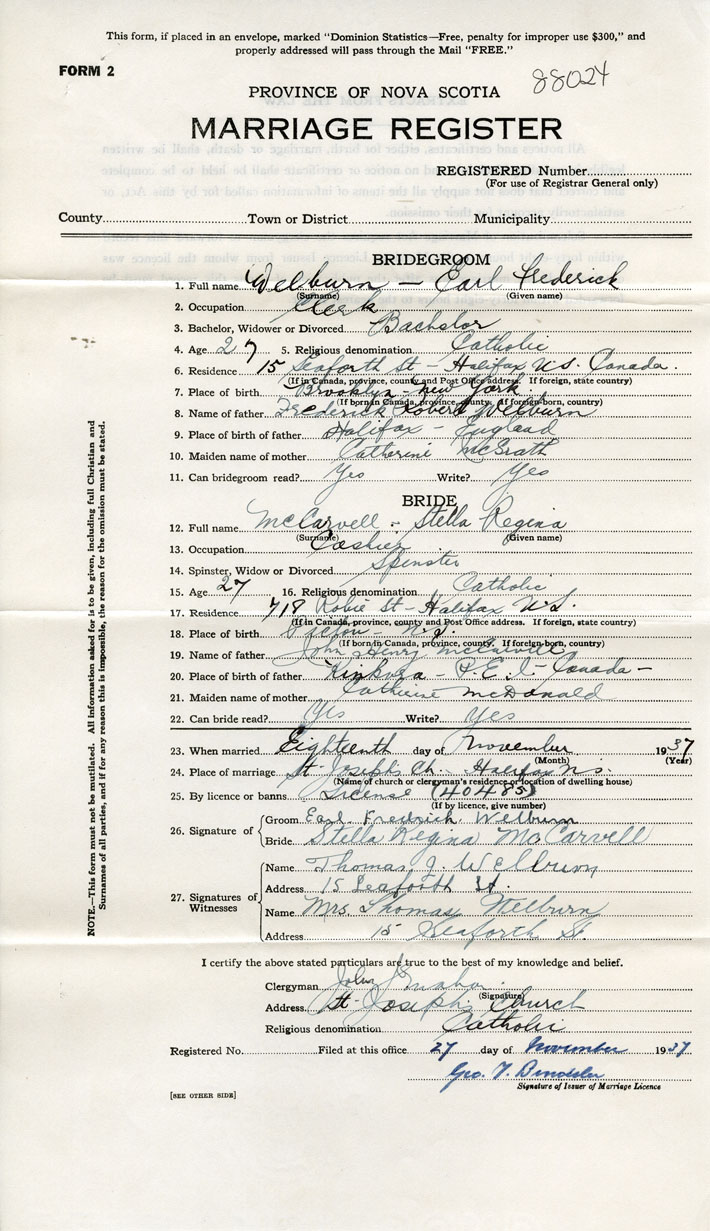 This form, if placed in an envelope, marked "Dominion Statistics—Free, penalty for improper use $300," and
properly addressed will pass through the Mail "FREE."
FORM 2
88024
PROVINCE OF NOVA SCOTIA
MARRIAGE REGISTER
REGISTERED Number
(For use of Registrar General only)
County Town or District Municipality
BRIDEGROOM
1. Full name Welburn — Earl Frederick
(Surname) (Given name)
2. Occupation Clerk
3. Bachelor, Widower or Divorced Bachelor
4. Age 27 5. Religious denomination Catholic
6. Residence 15 Seaforth St - Halifax N.S. Canada.
(If in Canada, province, county and Post Office address. If foreign, state country)
7. Place of birth Brooklyn - New York.
(If born in Canada, province, county. If foreign-born, country)
8. Name of father Frederick Robert Welburn
9. Place of birth of father Halifax - England
10. Maiden name of mother Catherine McGrath
11. Can bridegroom read? Yes Write? Yes
BRIDE
12. Full name McCarvell - Stella Regina
(Surname) (Given name)
13. Occupation Cashier
14. Spinster, Widow or Divorced Spinster
15. Age 27 16. Religious denomination Catholic
17. Residence 718 Robie St - Halifax N.S.
(If in Canada, province, county and Post Office address. If foreign, state country)
18. Place of birth Pictou - N.S.
(If born in Canada, province, county. If foreign-born, country)
19. Name of father John Henry McCarvell
20. Place of birth of father Kinkora - P.E.I - Canada -
21. Maiden name of mother Catherine McDonald
22. Can bride read? Yes Write? Yes
23. When married Eighteenth day of November 1937
(Month) (Year)
24. Place of marriage St. Joseph's Ch. Halifax N.S.
(Name of church or clergyman's residence or location of dwelling house)
25. By licence or banns License (40485)
(If by licence, give number)
26. Signature of Groom Earl Fredrick Welburn
Bride Stella Regina McCarvell
27. Signatures of Witnesses
Name Thomas J. Welburn
Address 15 Seaforth St.
Name Mrs. Thomas Welburn
Address 15 Seaforth St.
I certify the above stated particulars are true to the best of my knowledge and belief.
Clergyman John J
(Signature)
Address St. Joseph's Church
Religious denomination Catholic
Registered No. Filed at this office 27 day of November 1937
Geo. T.
Signature of Issuer of Marriage Licence
[SEE OTHER SIDE]
NOTE.—This form must not be mutilated. All information asked for is to be given, including full Christian and
Surnames of all parties, and if for any reason this is impossible, the reason for the omission must be stated.